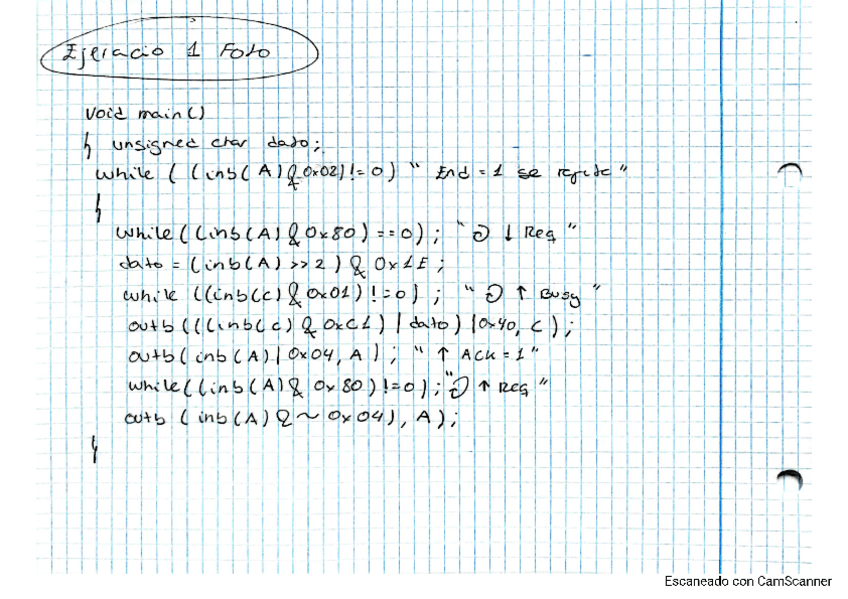 Ejercicio 1 Foto
void main()
{ unsigned char dato;
while ((inb(A)&0x02)!=0) " End = 1 se repite "
{
while((inb(A)&0x80)==0); " ↓ Req "
dato = (inb(A) >> 2) & 0x1E;
while ((inb(c)&0x01)!=0); " ↑ Busy "
outb(((inb(c) & 0xC1) | dato) | 0x40, C);
outb(inb(A) | 0x04, A); " ↑ Ack = 1 "
while((inb(A)& 0x80)!=0); " ↑ Req "
outb (inb(A)&~0x04), A);
}
Escaneado con CamScanner